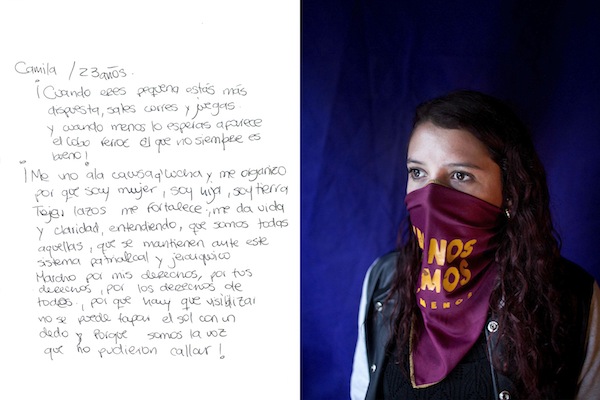 Camila / 23 años.
¡Cuando eres pequeña estás más
dispuesta, sales corres y juegas.
y cuando menos lo esperas aparece
el Lobo Feroz el que no siempre es
bueno!
¡Me uno a la causa, lucha y me organizo
por que soy mujer, soy hija, soy tierra
Tejer lazos me fortalece, me da vida
y claridad, entendiendo, que somos todas
aquellas, que se mantienen ante este
sistema patriarcal y jerarquico
Marcho por mis derechos, por tus
derechos, por los derechos de
todos., por que hay que visibilizar
no se puede tapar el sol con un
dedo y Porque somos la voz
que no pudieron callar!
NOS
MOS
MENOS